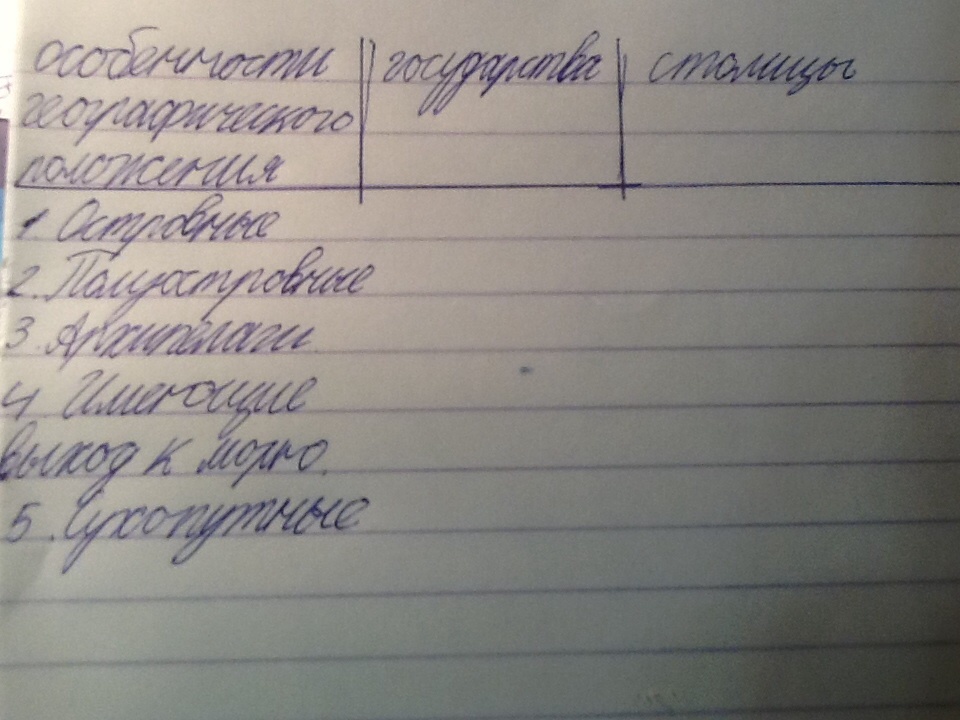 особенности государства столицы
географического
положения
1. Островные
2. Полуостровные
3. Архипелаги
4 Имеющие
выход к морю.
5. Сухопутные